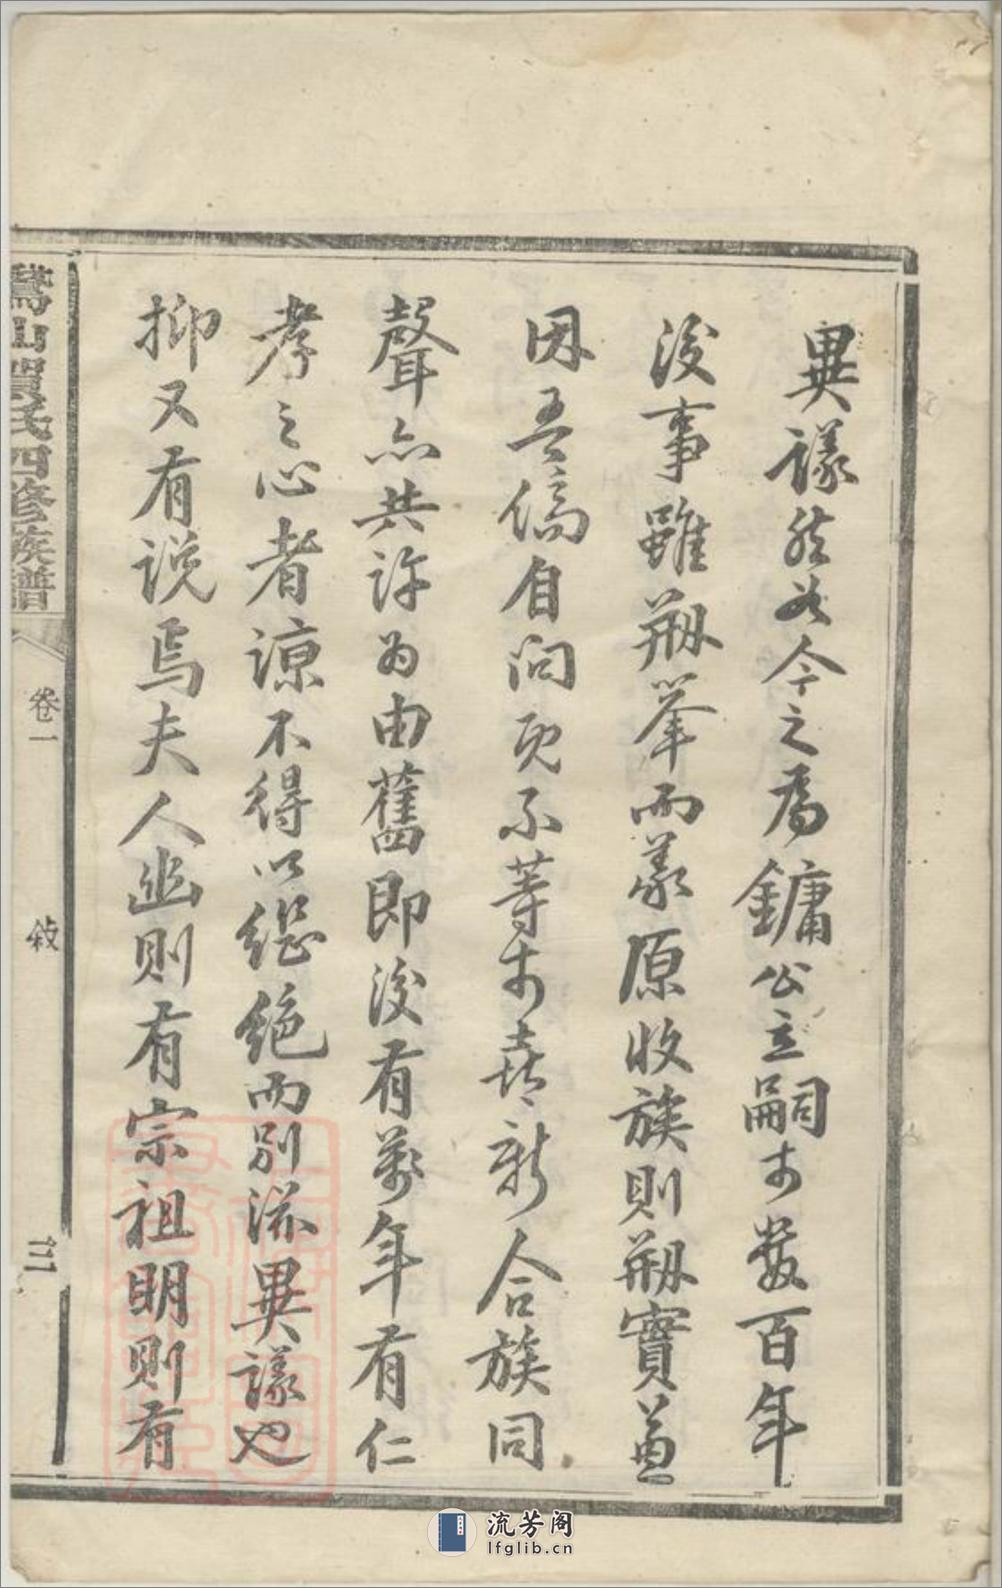 異議然如今之為鏞公立嗣於數百年
後事雖刱舉而義原收族則刱實兼
因吾儕自問既不等於喜新合族同
聲亦共許為由舊即後有萬年有仁
孝之心者諒不得以繼絕而別滋異議也
抑又有說焉夫人幽則有宗祖明則有
鵞山賀氏四修族譜
卷一
敘
三
流芳阁
lfglib.cn